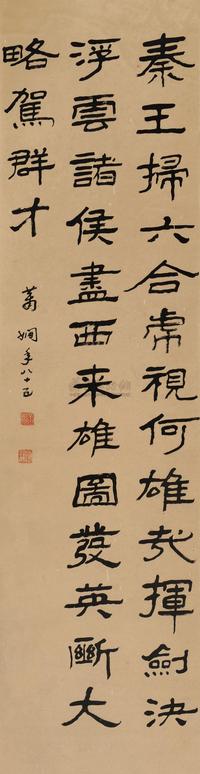 秦王掃六合虎視何雄哉揮劍決
浮雲諸侯盡西来雄圖發英斷大
略駕群才
蕭嫻年八十五